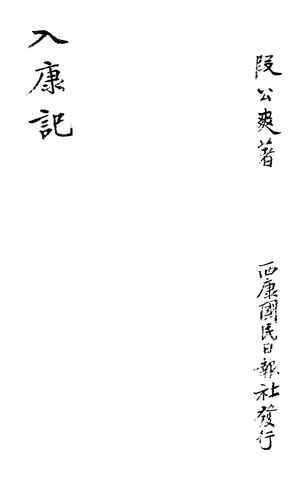 段公爽著
西康國民日報社發行
入康記